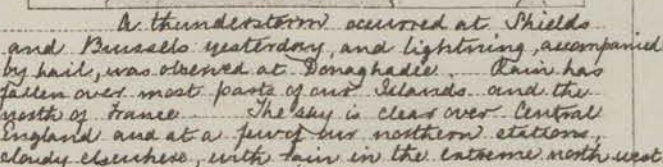 A thunderstorm occurred at Shields
and Brussels yesterday, and lightning, accompanied
by hail, was observed at Donaghadee. Rain has
fallen over most parts of our Islands and the
north of France. The sky is clear over Central
England and at a few of our northern stations,
cloudy elsewhere, with rain in the extreme north west